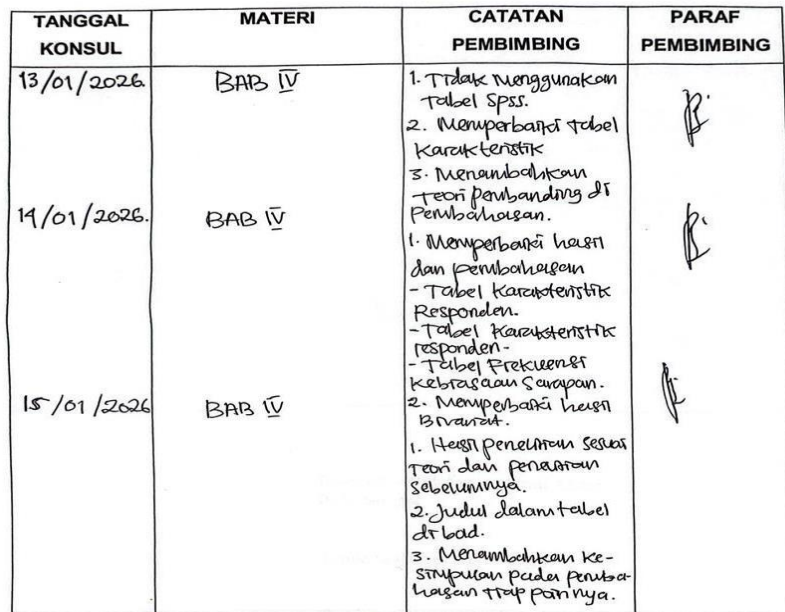 TANGGAL KONSUL MATERI CATATAN PEMBIMBING PARAF PEMBIMBING
13/01/2026 BAB IV 1. Tidak Menggunakan
Tabel Spss.
2. Memperbaiki tabel
Karakteristik
3. Menambahkan
Teori pembanding di
Pembahasan.
14/01/2026. BAB IV
1. Memperbaiki hasil
dan pembahasan
- Tabel Karakteristik
Responden.
- Tabel Karakteristik
responden-
- Tabel Frekuensi
Kebiasaan Sarapan.
15/01/2026 BAB IV
2. Memperbaiki hasil
Bivariat.
1. Hasil penelitian sesuai
Teori dan penelitian
sebelumnya.
2. Judul dalam tabel
di bad.
3. Menambahkan ke-
simpulan pada pemba-
hasan tiap poinnya.